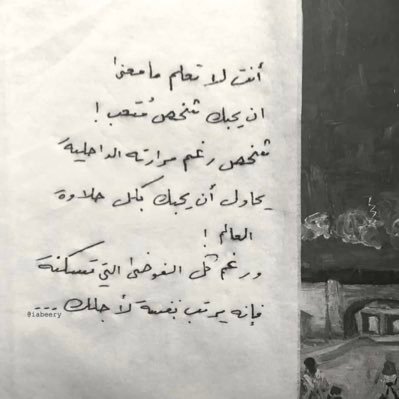 أنت لا تعلم ما معنى
ان يحبك شخص مُتعب !
شخص رغم مرارته الداخلية
يحاول أن يحبك بكل حلاوة
العالم !
ورغم كل الفوضى التي تسكنه
فإنه يرتب نفسه لأجلك ...
@iabeery